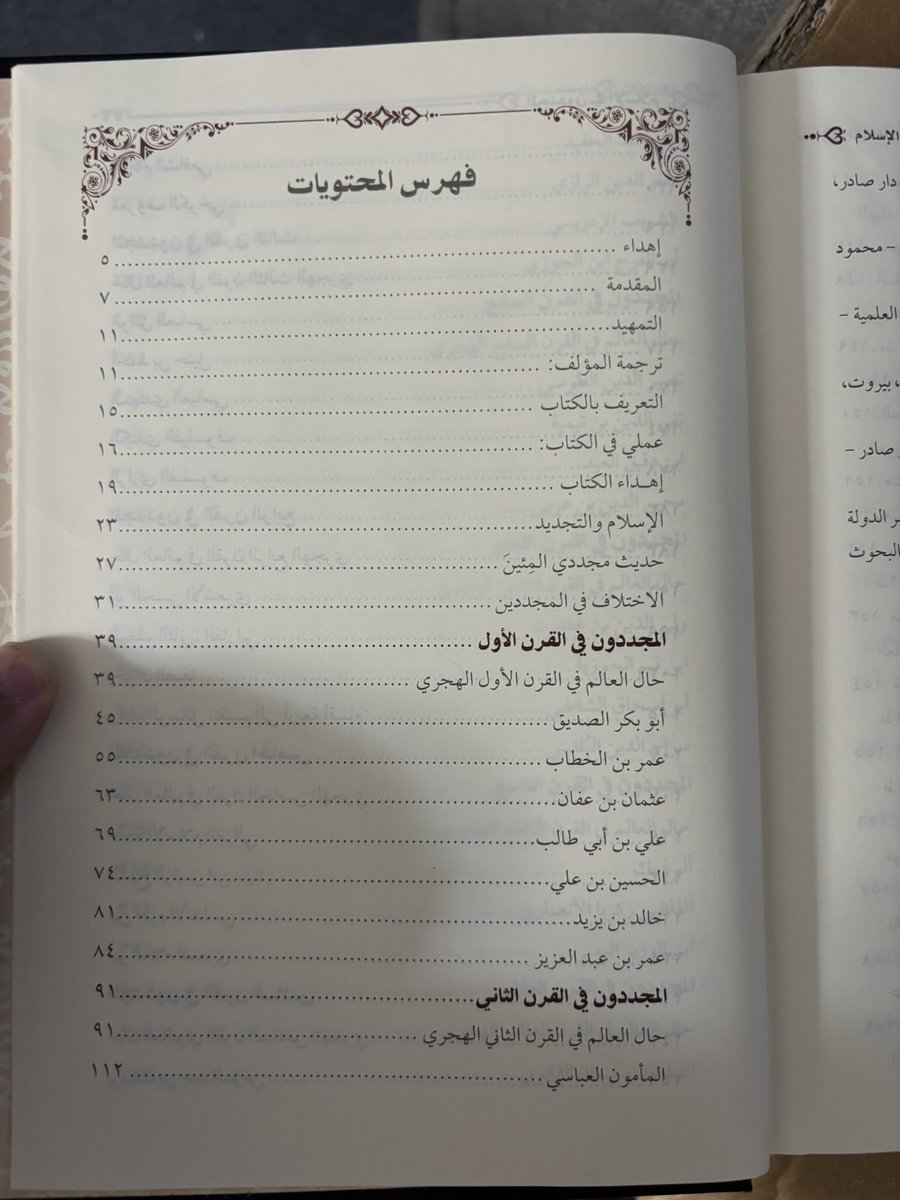 فهرس المحتويات
إهداء ........ ٥
المقدمة ........ ٧
التمهيد ........ ١١
ترجمة المؤلف: ........ ١١
التعريف بالكتاب ........ ١٥
عملي في الكتاب: ........ ١٦
إهداء الكتاب ........ ١٩
الإسلام والتجديد ........ ٢٣
حديث مجددي المِئينَ ........ ٢٧
الاختلاف في المجددين ........ ٣١
المجددون في القرن الأول ........ ٣٩
حال العالم في القرن الأول الهجري ........ ٣٩
أبو بكر الصديق ........ ٤٥
عمر بن الخطاب ........ ٥٥
عثمان بن عفان ........ ٦٣
علي بن أبي طالب ........ ٦٩
الحسين بن علي ........ ٧٤
خالد بن يزيد ........ ٨١
عمر بن عبد العزيز ........ ٨٤
المجددون في القرن الثاني ........ ٩١
حال العالم في القرن الثاني الهجري ........ ٩١
المأمون العباسي ........ ١١٢
الإسلام
دار صادر،
– محمود
العلمية –
، بيروت،
صادر –
الدولة
البحوث